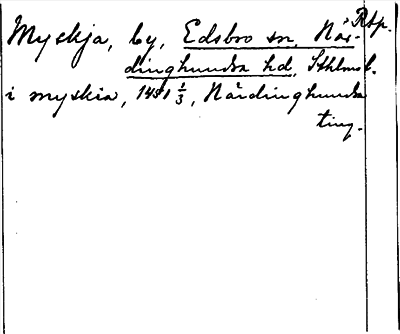 Rsp.
Myskja, by, Edsbro sn, När-
dinghundra hd, Sthlms l.
i myskia, 1451 1/3, Närdinghundra
ting.